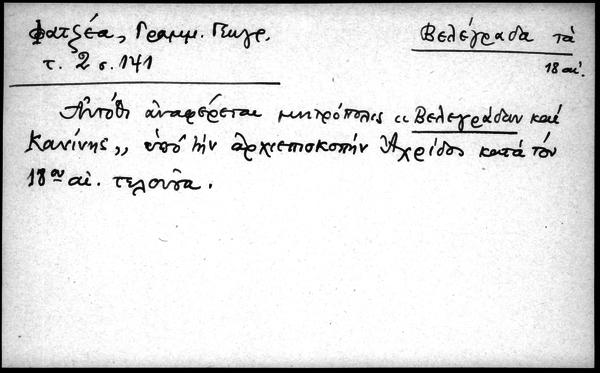 Φατζέα, Γραμμ. Γεωγρ.
τ. 2 σ. 141
Βελέγραδα τά
18 αἰ.
Αὐτόθι ἀναφέρεται μητρόπολις «Βελεγράδων καί
Κανίνης», ὑπό τήν ἀρχιεπισκοπήν Ἀχρίδος κατά τόν
18ον αἰ. τελοῦσα.